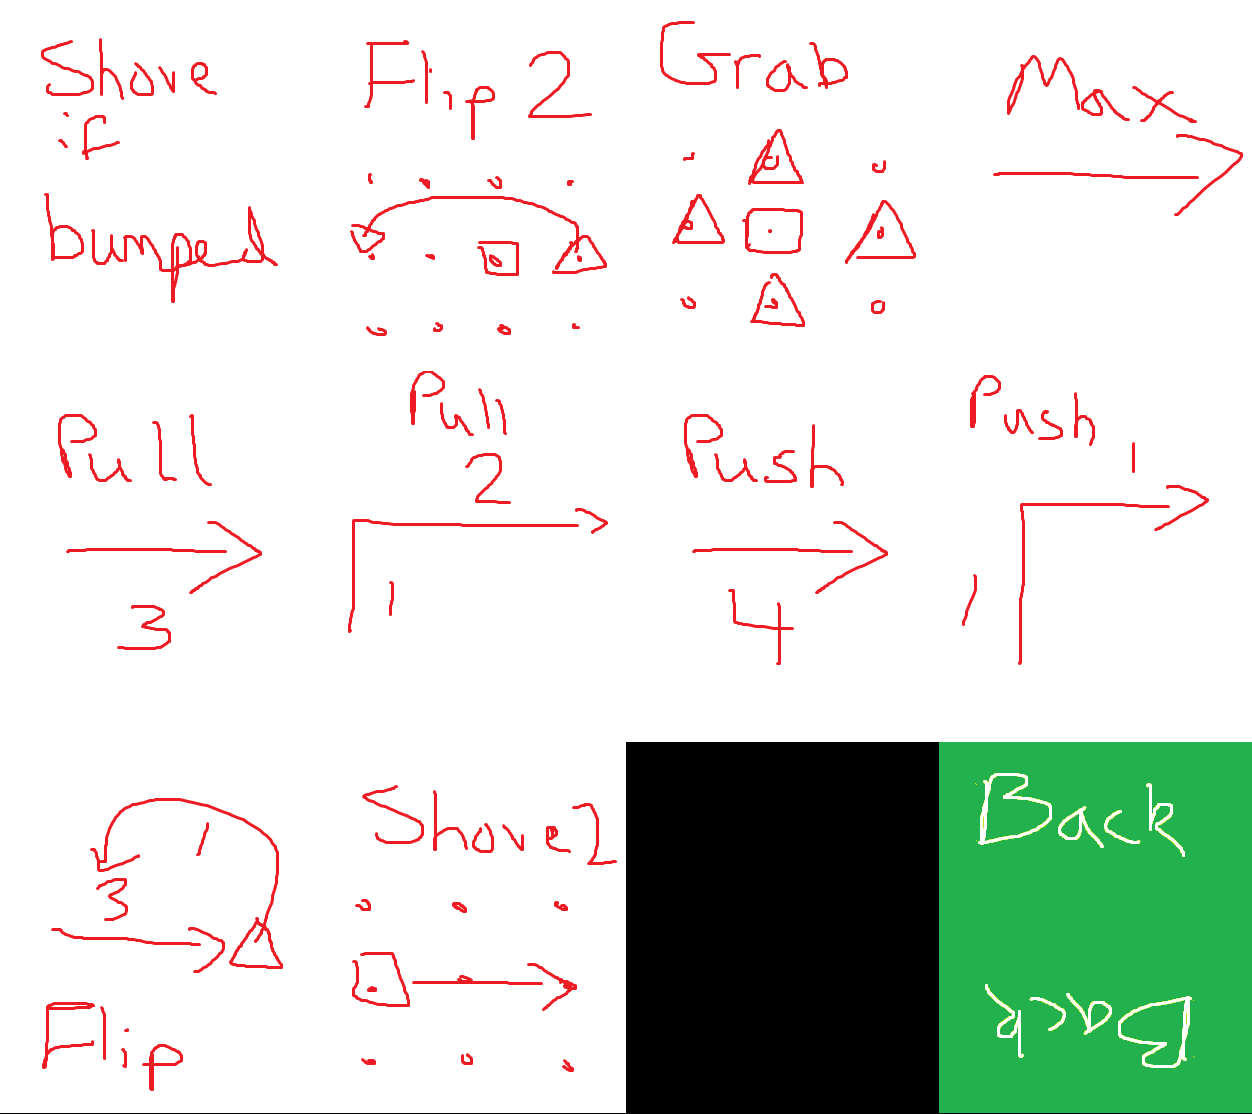 Shove
if
bumped
Flip 2
Grab
Max
Pull
3
Pull
2
1
Push
4
Push
1
1
1
3
Flip
Shove 2
Back
Back